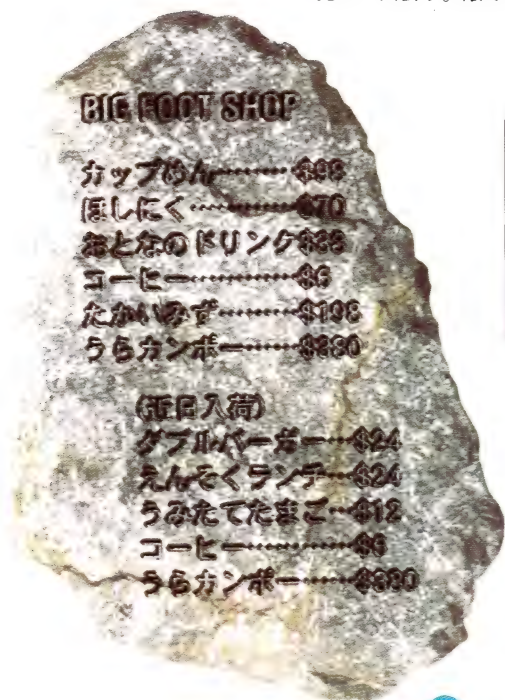 BIG FOOT SHOP
カップめん………$98
ほしにく…………$70
おとなのドリンク$38
コーヒー…………$6
たかいみず………$198
うらカンポー……$380
(近日入荷)
ダブルバーガー…$24
えんそくランチ…$24
うみたてたまご…$12
コーヒー…………$6
うらカンポー……$380